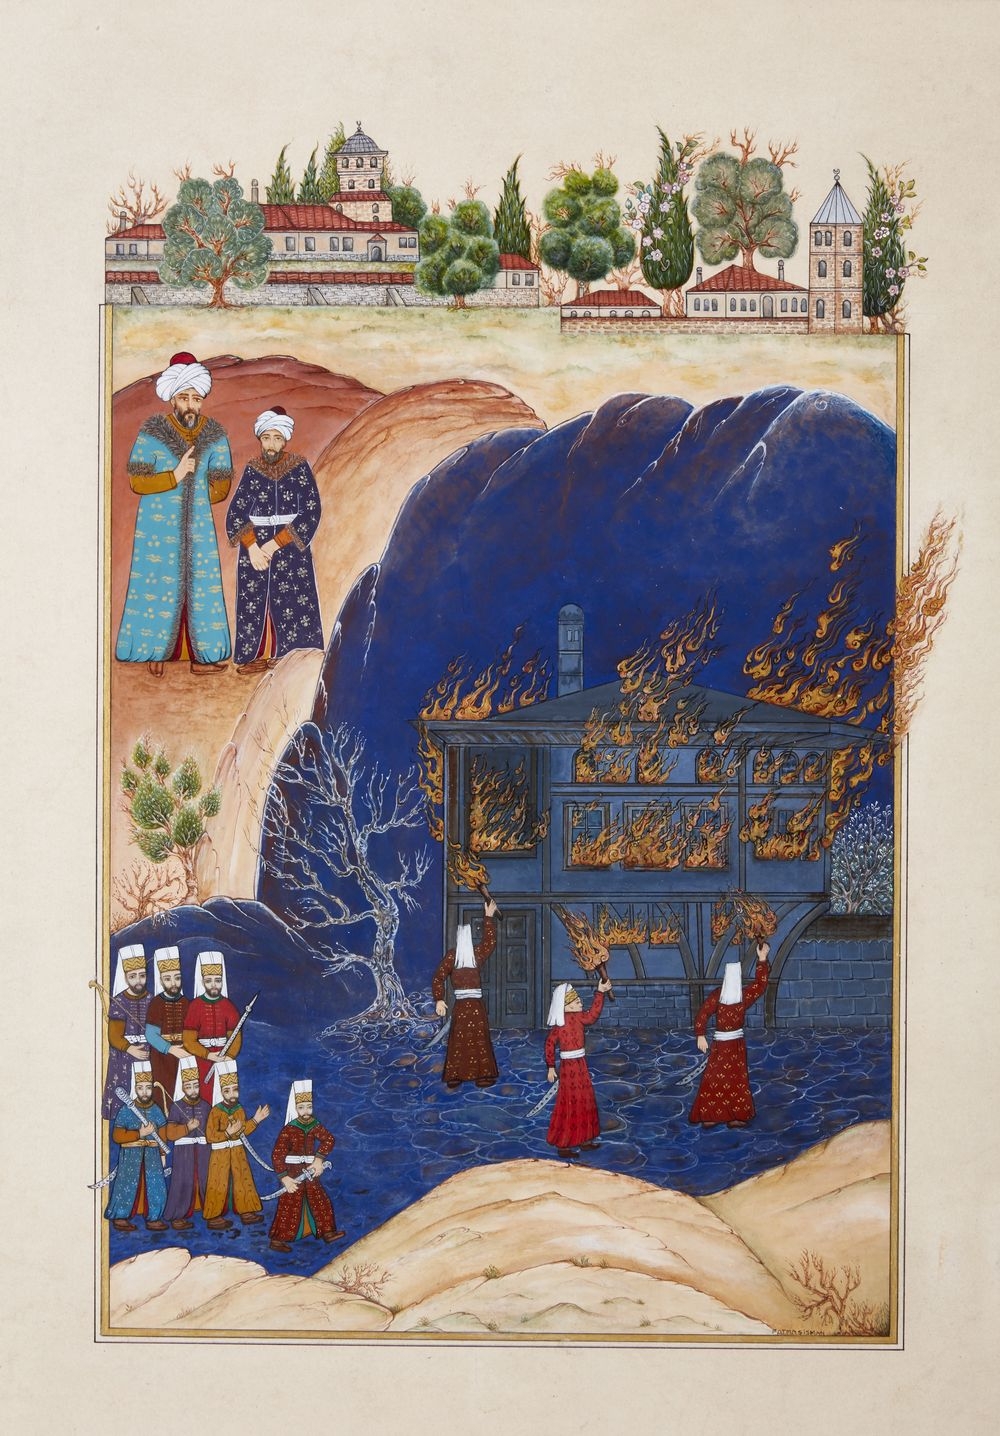 FATMA SISMAN